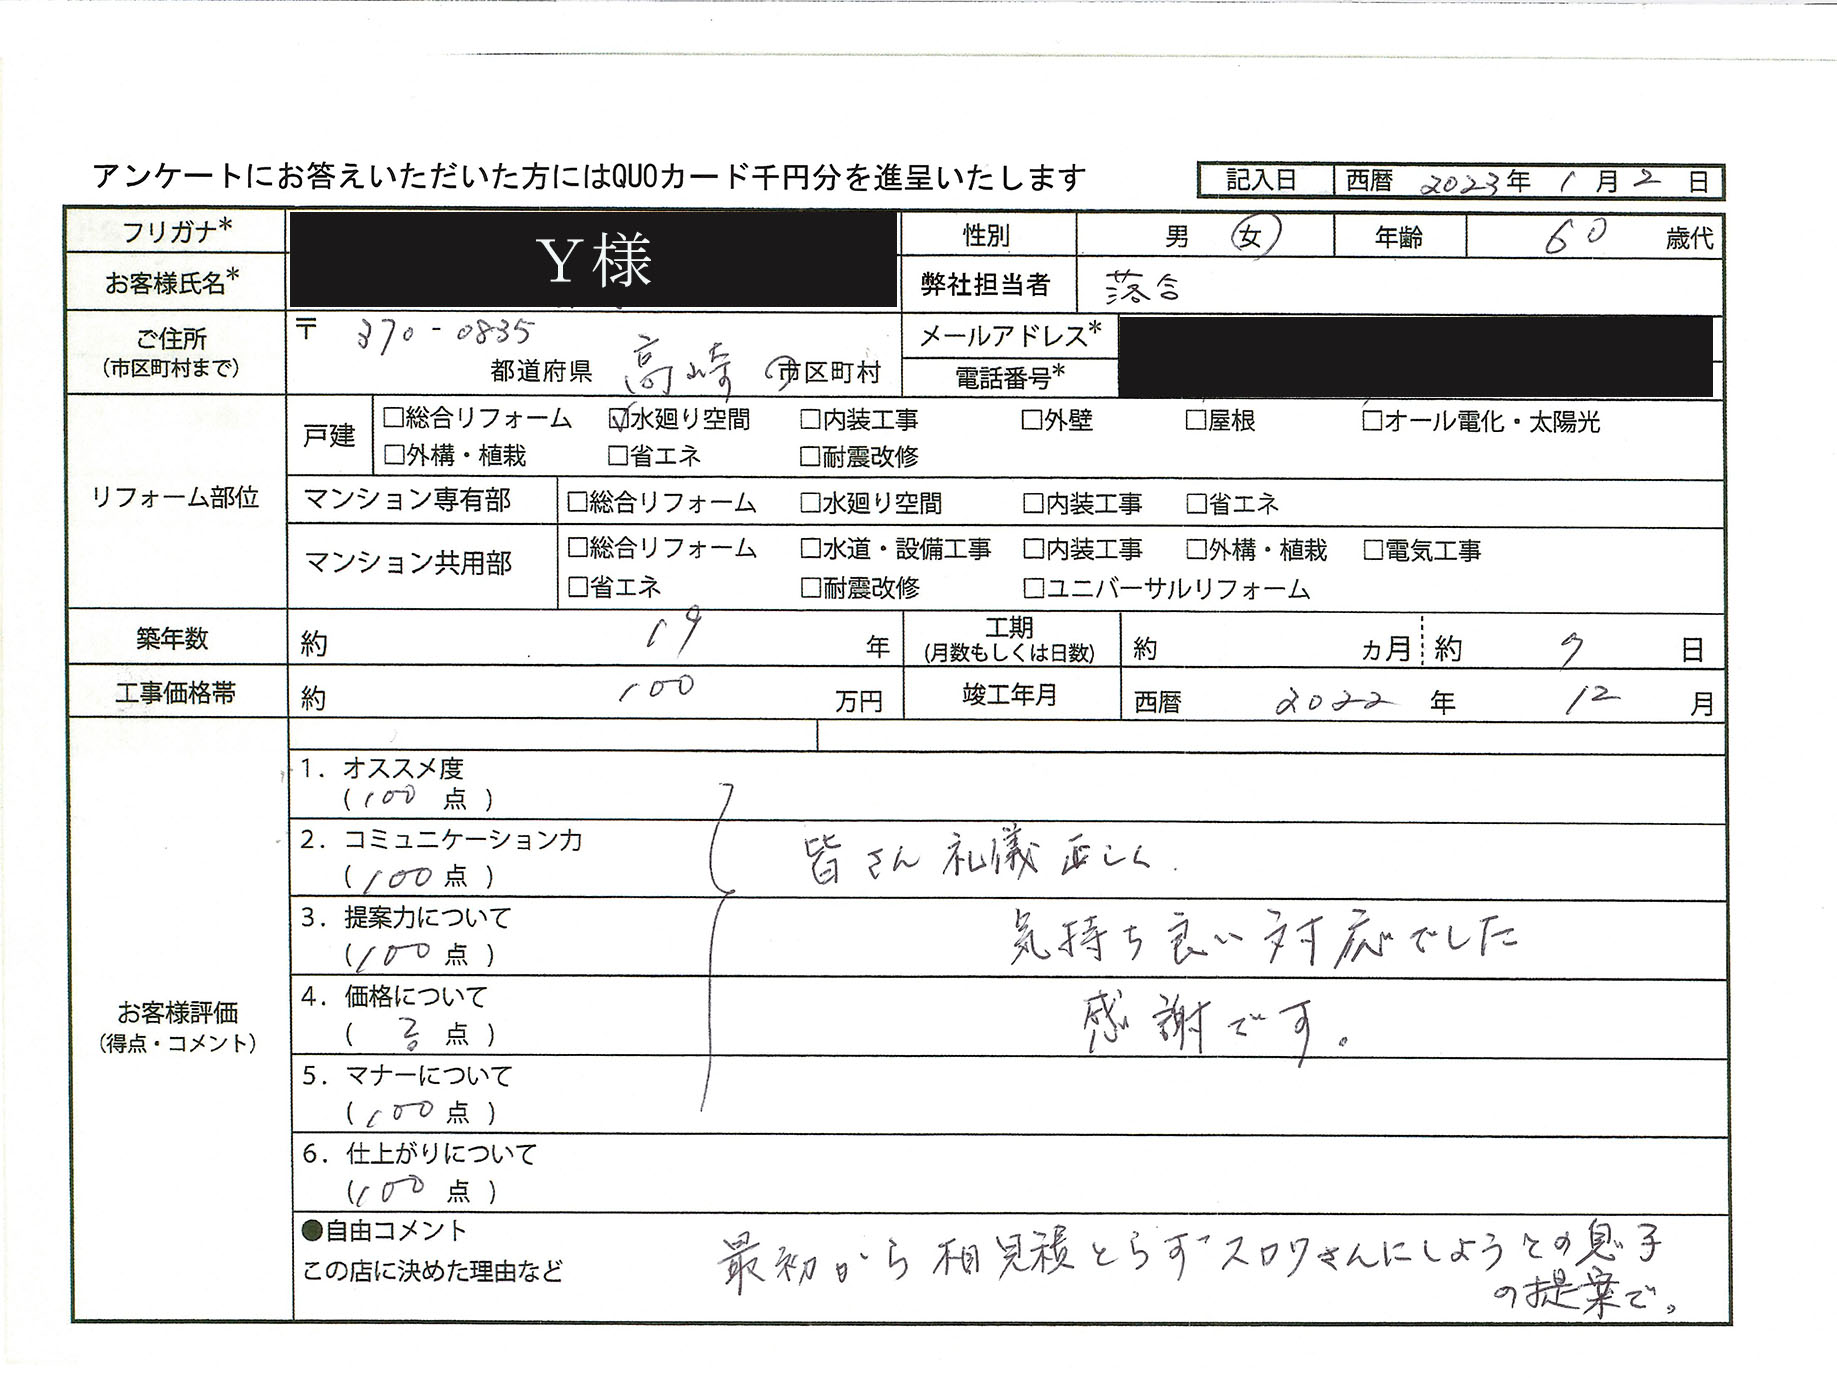 アンケートにお答えいただいた方にはQUOカード千円分を進呈いたします
記入日 西暦 2023年 1月 2日
フリガナ* Y様 性別 男 女 年齢 60 歳代
お客様氏名* 弊社担当者 落合
ご住所 〒 370-0835 メールアドレス*
(市区町村まで) 都道府県 高崎 市区町村 電話番号*
リフォーム部位
戸建 □総合リフォーム ☑水廻り空間 □内装工事 □外壁 □屋根 □オール電化・太陽光
□外構・植栽 □省エネ □耐震改修
マンション専有部 □総合リフォーム □水廻り空間 □内装工事 □省エネ
マンション共用部 □総合リフォーム □水道・設備工事 □内装工事 □外構・植栽 □電気工事
□省エネ □耐震改修 □ユニバーサルリフォーム
築年数 約 19 年 工期 (月数もしくは日数) 約 ヵ月 約 日
工事価格帯 約 100 万円 竣工年月 西暦 2022 年 12 月
お客様評価
(得点・コメント)
1. オススメ度
(100 点)
2. コミュニケーション力
(100点)
皆さん礼儀正しく.
3. 提案力について
(100点)
気持ち良い対応でした
4. 価格について
( 点)
感謝です。
5. マナーについて
(100点)
6. 仕上がりについて
(100点)
●自由コメント
この店に決めた理由など
最初から相見積とらずスロワさんにしようとの息子
の提案で。